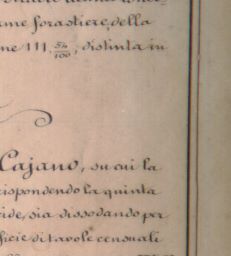 rme forastiere, della
ne 111. 54/100, distinta in
Cajano, su cui la
rispondendo la quinta
ide, sia dissodando per
ficie di tavole censuali